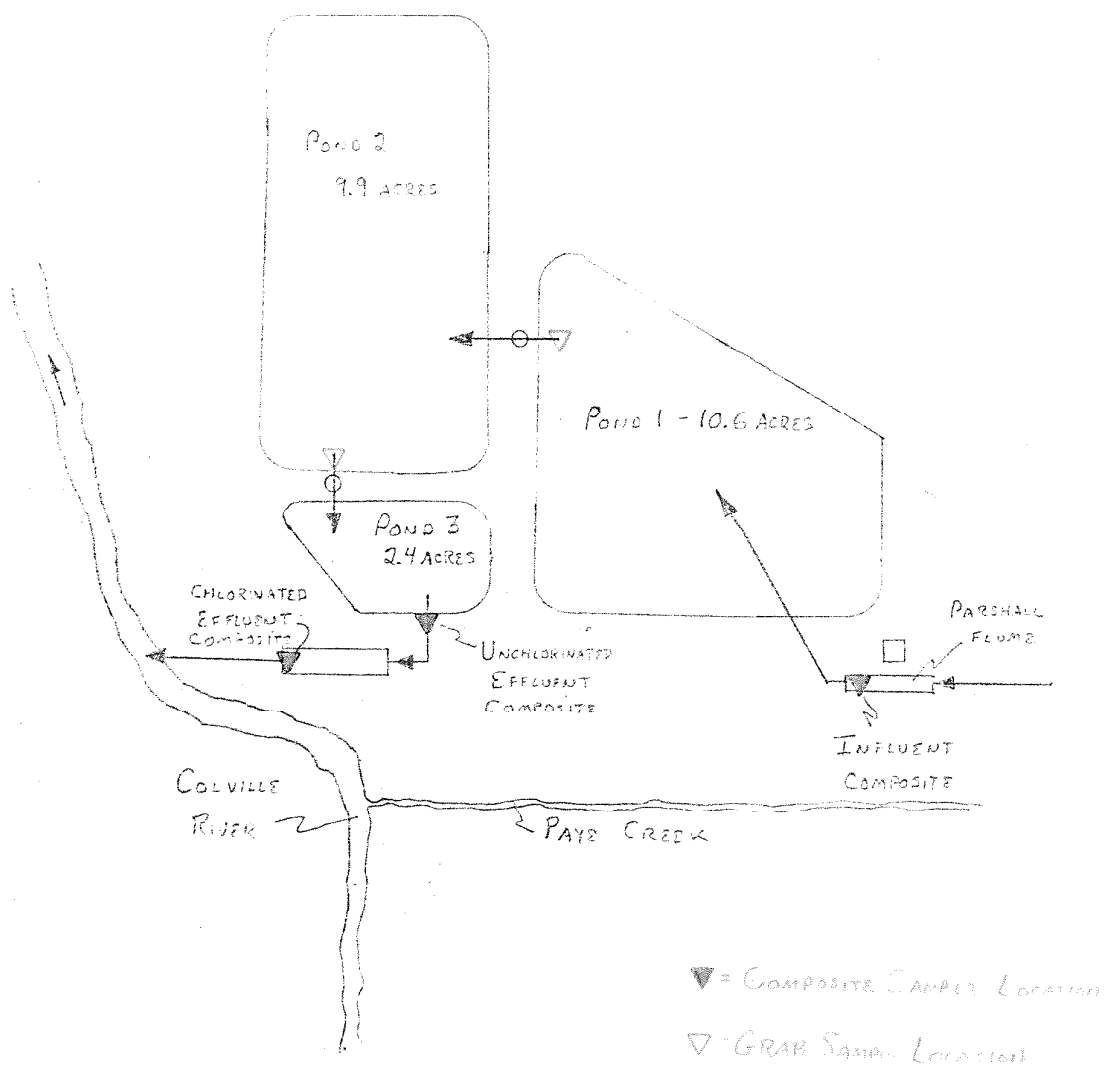 POND 2
9.9 ACRES
POND 1 - 10.6 ACRES
POND 3
2.4 ACRES
CHLORINATED
EFFLUENT
COMPOSITE
UNCHLORINATED
EFFLUENT
COMPOSITE
PARSHALL
FLUME
INFLUENT
COMPOSITE
COLVILLE
RIVER
PAYE CREEK
= COMPOSITE SAMPLE LOCATION
GRAB SAMPLE LOCATION